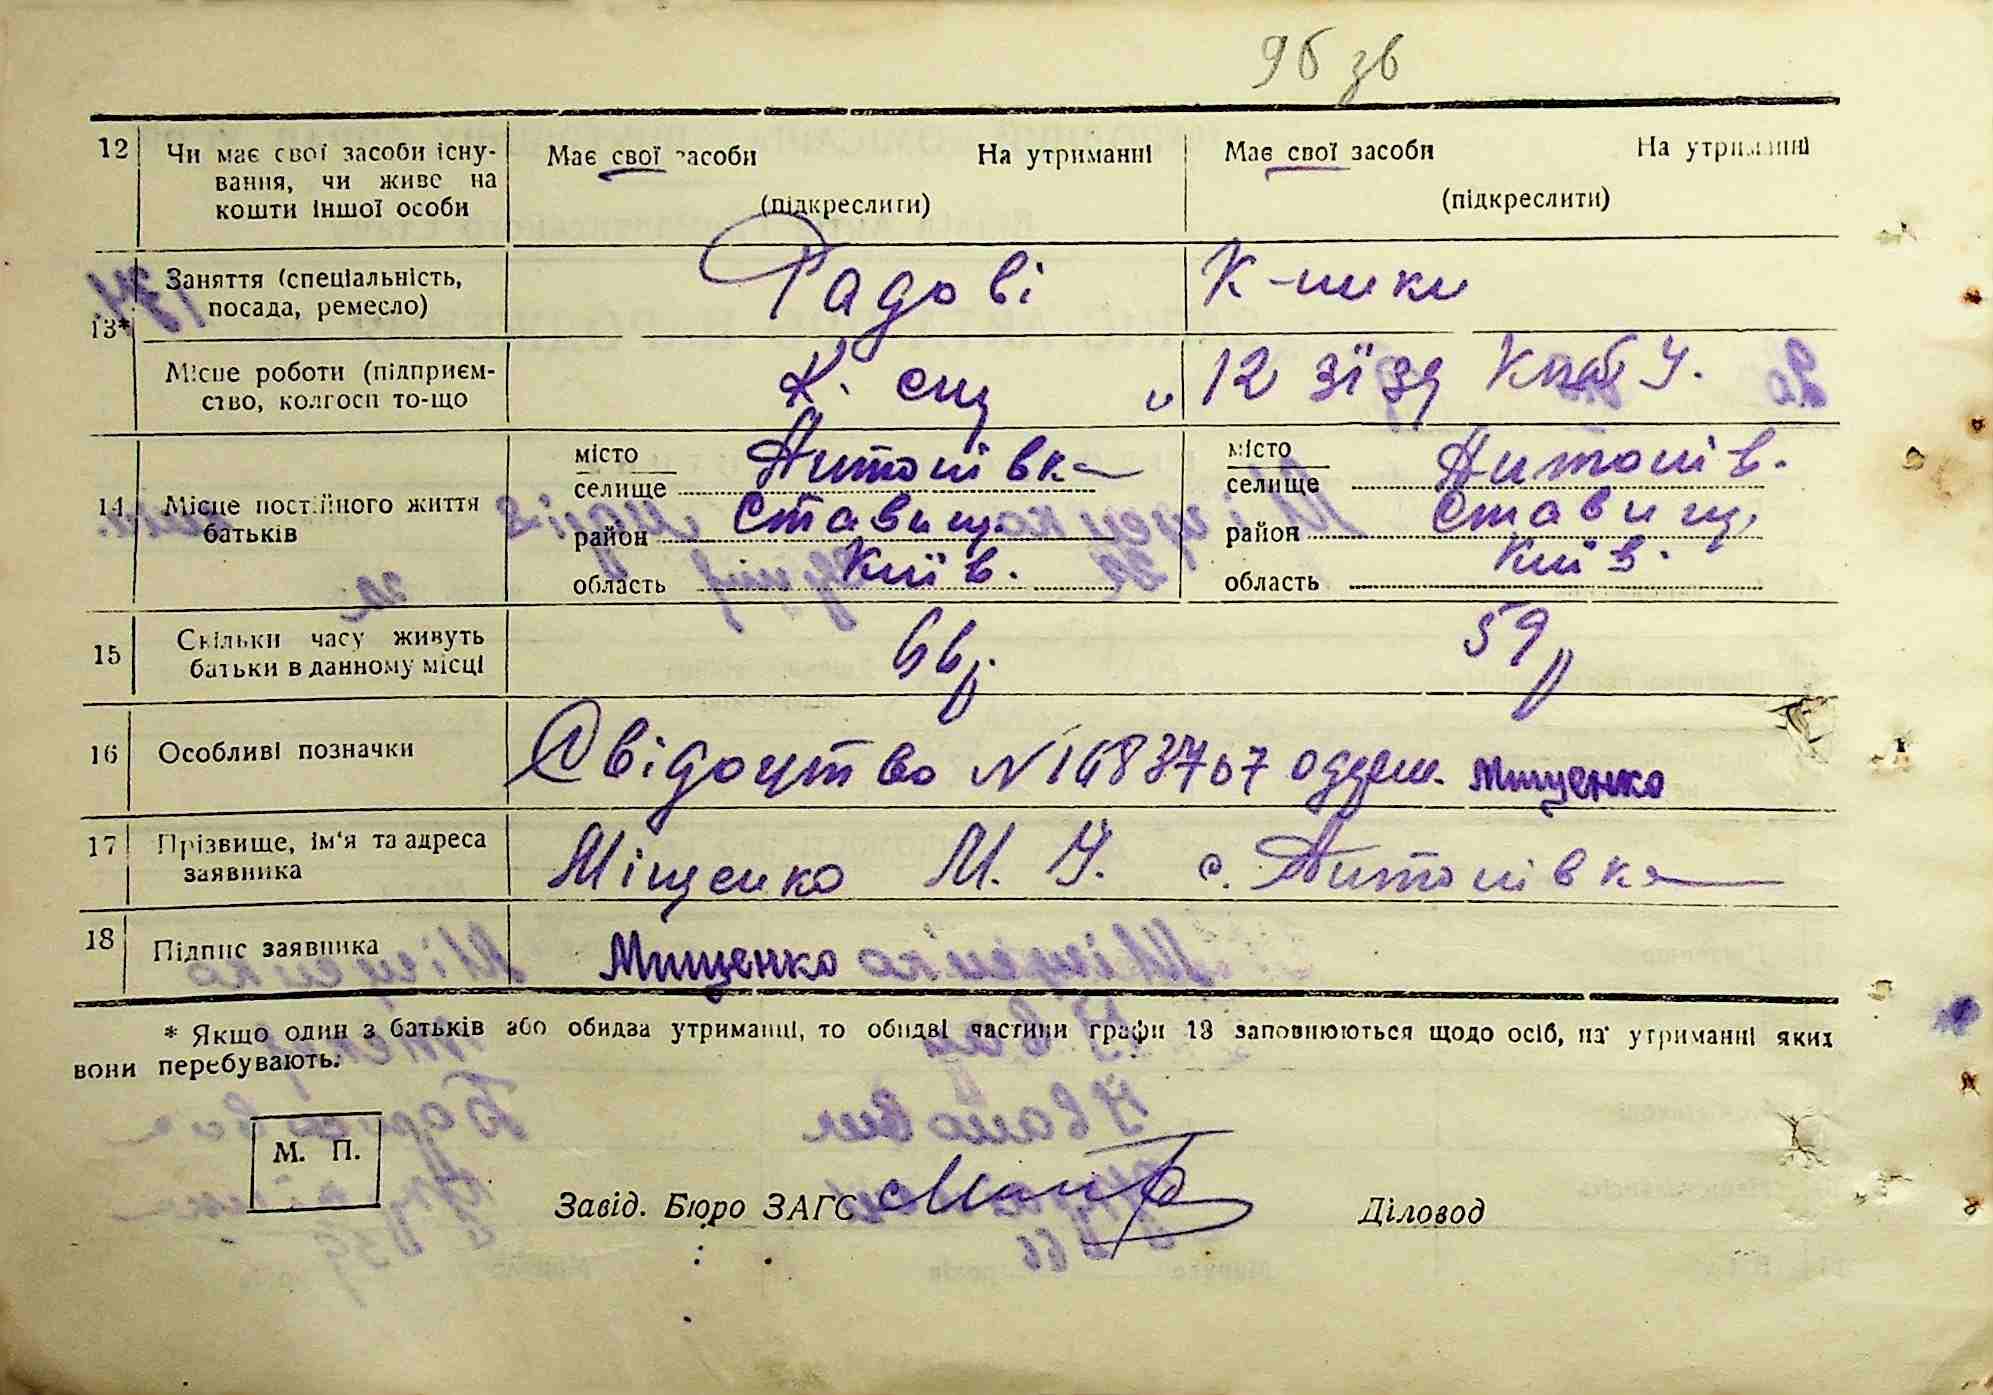 96 зв
12 Чи має свої засоби існування, чи живе на кошти іншої особи
Має свої засоби На утриманні
(підкреслити)
Має свої засоби На утриманні
(підкреслити)
13*
Заняття (спеціальність, посада, ремесло)
Радові К-ники
Місце роботи (підприємство, колгосп то-що)
К. спд " 12 зїзд КПбУ.
14 Місце постійного життя батьків
місто
селище Антонівка
район Ставищ.
область Київ.
місто
селище Антонів.
район Ставищ.
область Київ.
15 Скільки часу живуть батьки в данному місці
66 р. 59 р
16 Особливі позначки
Свідоцтво N 1683707 одерж. Мищенко
17 Прізвище, ім'я та адреса заявника
Міщенко М. У. с. Антонівка
18 Підпис заявника
Мищенко
* Якщо один з батьків або обидва утриманці, то обидві частини графи 13 заповнюються щодо осіб, на утриманні яких
вони перебувають.
М. П.
Завід. Бюро ЗАГС
Діловод